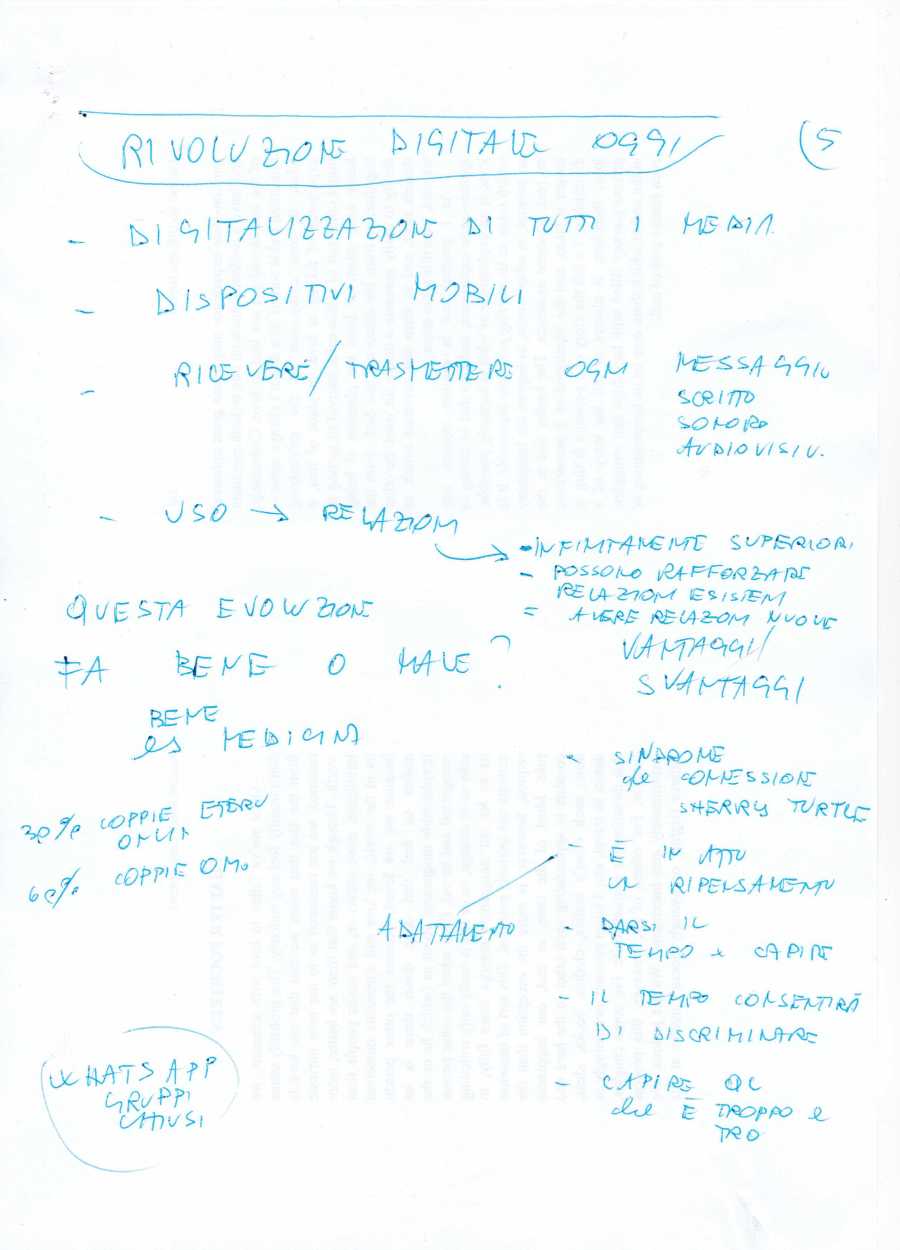 RIVOLUZIONE DIGITALE OGGI
(5
- DIGITALIZZAZIONE DI TUTTI I MEDIA
- DISPOSITIVI MOBILI
- RICEVERE/TRASMETTERE OGNI MESSAGGIO
SCRITTO
SONORO
AUDIOVISIV.
- USO → RELAZIONI
- INFINITAMENTE SUPERIORI
- POSSONO RAFFORZARE
RELAZIONI ESISTENTI
= AVERE RELAZIONI NUOVE
QUESTA EVOLUZIONE
FA BENE O MALE?
VANTAGGI/
SVANTAGGI
BENE
es MEDICINA
- SINDROME
de CONNESSIONE
SHERRY TURTLE
30% COPPIE ETERO
ONLIN
60% COPPIE OMO
- È IN ATTO
UN RIPENSAMENTO
ADATTAMENTO
- DARSI IL
TEMPO x CAPIRE
- IL TEMPO CONSENTIRÀ
DI DISCRIMINARE
- CAPIRE QL
che È TROPPO e
TRO
WHATSAPP
GRUPPI
CHIUSI